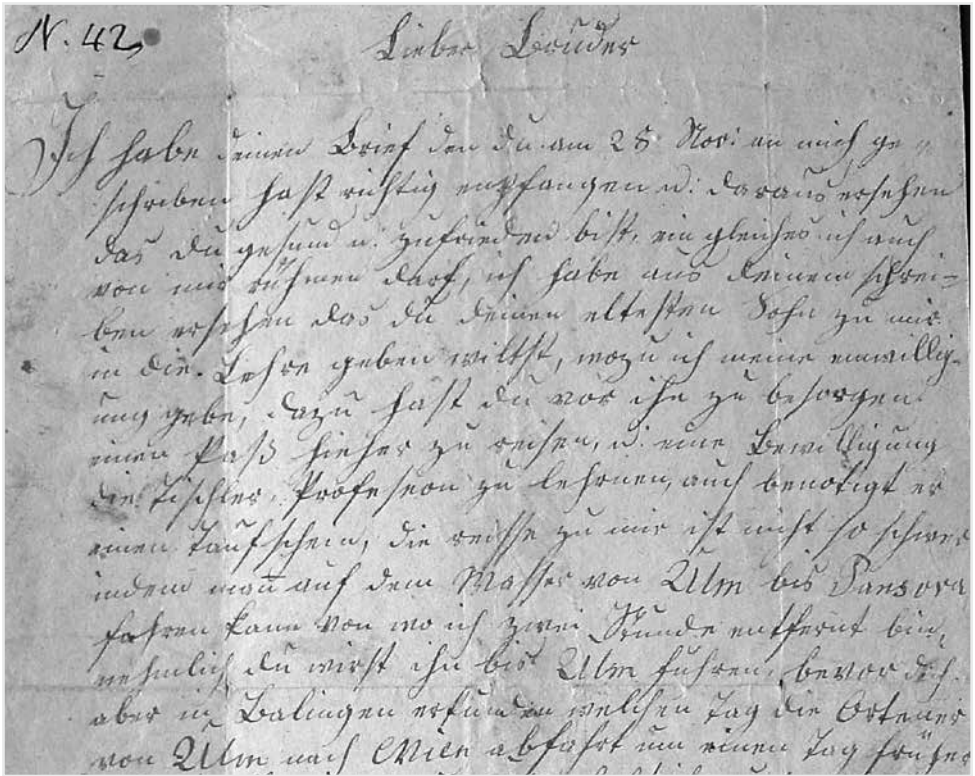 N. 42
Lieber Bruder
Ich habe deinen Brief den du am 28 Nov: an mich ge
schriben hast richtig empfangen u: daraus ersehen
das du gesund u. zufrieden bist, ein gleiches ich auch
von mir rühmen darf, ich habe aus deinem schrei=
ben ersehen das du deinen eltesten Sohn zu mir
in die Lehre geben wiltst, wozu ich meine einwillig=
ung gebe, dazu hast du vor ihn zu besorgen
einen Paß hieher zu reisen, u: eine Bewilligung
die Tischler Profession zu lehrnen, auch benötigt er
einen Taufschein, die reisse zu mir ist nicht so schwer
indem man auf dem Wasser von Ulm bis
fahren kann von wo ich zwei Stunde entfernt bin,
nehmlich du wirst ihn bis Ulm führen, bevor dich
aber in Balingen erkunden welchen Tag die
von Ulm nach Wien abfahrt um einen Tag früher